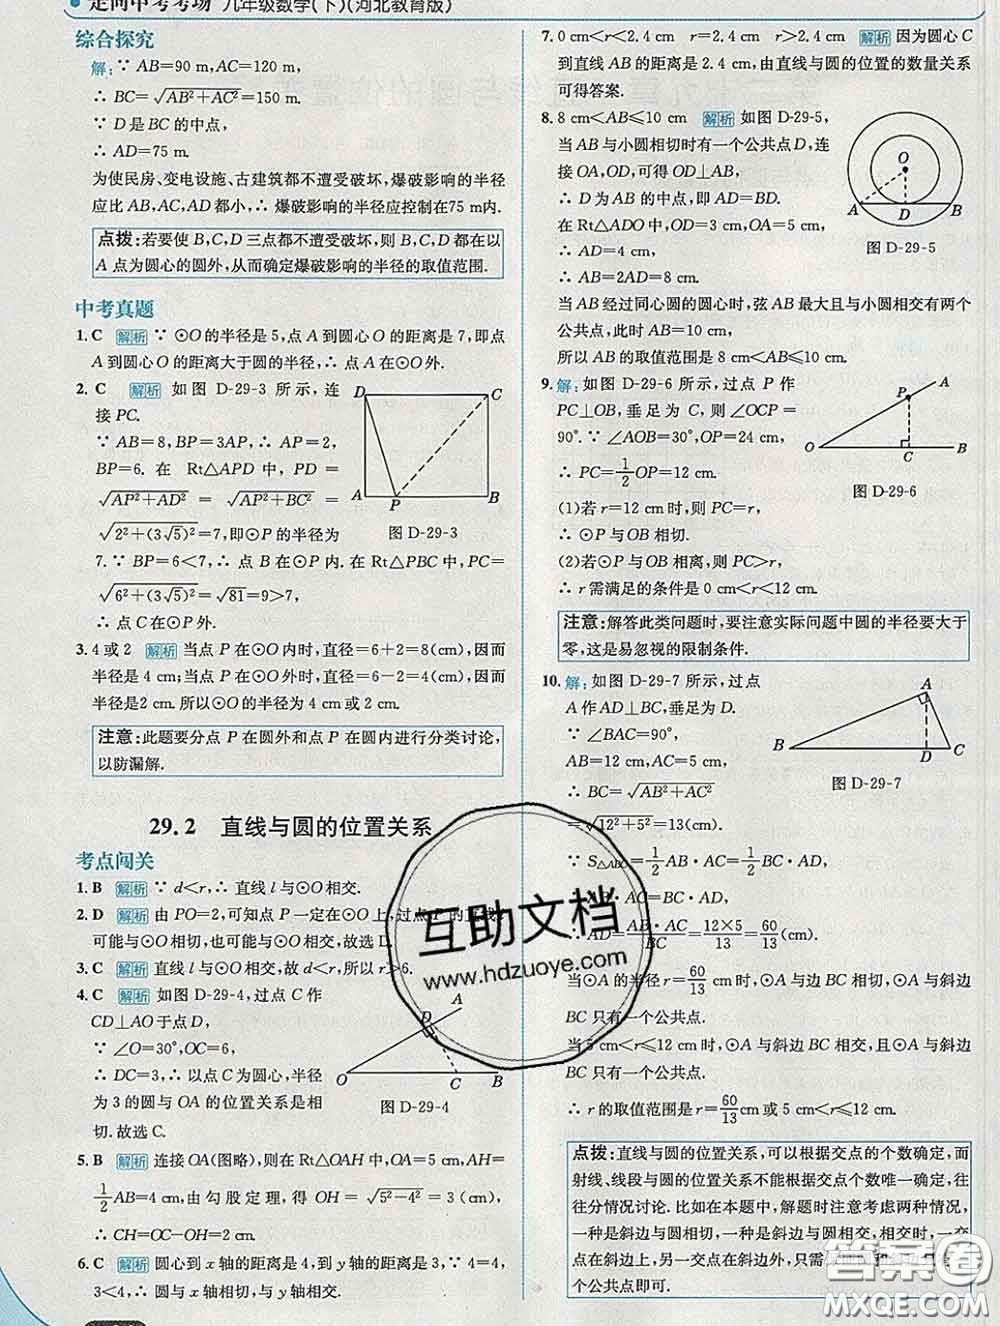 走向中考考场 九年级数学(下)(河北教育版)
综合探究
解:∵ AB=90 m,AC=120 m,
∴ BC=√(AB²+AC²)=150 m.
∵ D是BC的中点,
∴ AD=75 m.
为使民房、变电设施、古建筑都不遭受破坏,爆破影响的半径
应比AB,AC,AD都小,∴ 爆破影响的半径应控制在75 m内.
点拨:若要使B,C,D三点都不遭受破坏,则B,C,D都在以
A点为圆心的圆外,从而确定爆破影响的半径的取值范围.
中考真题
1.C 解析 ∵ ⊙O的半径是5,点A到圆心O的距离是7,即点
A到圆心O的距离大于圆的半径,∴ 点A在⊙O外.
2.C 解析 如图D-29-3所示,连
接PC.
∵ AB=8,BP=3AP,∴ AP=2,
BP=6. 在 Rt△APD 中, PD =
√(AP²+AD²) = √(AP²+BC²) =
√(2²+(3√5)²)=7,即⊙P的半径为
7.∵ BP=6<7,∴ 点B在⊙P内.在Rt△PBC中,PC=
√(6²+(3√5)²)=√81=9>7,
∴ 点C在⊙P外.
D C A P B
图 D-29-3
3.4或2 解析 当点P在⊙O内时,直径=6+2=8(cm),因而
半径是4 cm;当点P在⊙O外时,直径=6-2=4(cm),因而
半径是2 cm.所以⊙O的半径为4 cm或2 cm.
注意:此题要分点P在圆外和点P在圆内进行分类讨论,
以防漏解.
29.2 直线与圆的位置关系
考点闯关
1.B 解析 ∵ d<r,∴ 直线l与⊙O相交.
2.D 解析 由PO=2,可知点P一定在⊙O上,过点P的直线l
可能与⊙O相切,也可能与⊙O相交,故选D.
3.C 解析 直线l与⊙O相交,故d<r,所以r>6.
4.C 解析 如图D-29-4,过点C作
CD⊥AO于点D,
∵ ∠O=30°,OC=6,
∴ DC=3,∴ 以点C为圆心,半径
为3的圆与OA的位置关系是相
切.故选C.
A D O C B
图 D-29-4
5.B 解析 连接OA(图略),则在Rt△OAH中,OA=5 cm,AH=
1/2AB=4 cm,由勾股定理,得OH=√(5²-4²)=3(cm),
∴ CH=OC-OH=2 cm.
6.C 解析 圆心到x轴的距离是4,到y轴的距离是3,∵ 4=4,
3<4,∴ ⊙O与x轴相切,与y轴相交.
7.0 cm<r<2.4 cm r=2.4 cm r>2.4 cm 解析 因为圆心C
到直线AB的距离是2.4 cm,由直线与圆的位置的数量关系
可得答案.
8.8 cm<AB≤10 cm 解析 如图D-29-5,
当AB与小圆相切时有一个公共点D,连
接OA,OD,可得OD⊥AB,
∴ D为AB的中点,即AD=BD.
在Rt△ADO中,OD=3 cm,OA=5 cm,
∴ AD=4 cm,
∴ AB=2AD=8 cm.
O A D B
图 D-29-5
当AB经过同心圆的圆心时,弦AB最大且与小圆相交有两个
公共点,此时AB=10 cm,
所以AB的取值范围是8 cm<AB≤10 cm.
9.解:如图D-29-6所示,过点P作
PC⊥OB,垂足为C,则∠OCP=
90°.∵ ∠AOB=30°,OP=24 cm,
∴ PC=1/2OP=12 cm.
(1)若r=12 cm时,则PC=r,
∴ ⊙P与OB相切.
A P O C B
图 D-29-6
(2)若⊙P与OB相离,则PC>r,
∴ r需满足的条件是0 cm<r<12 cm.
注意:解答此类问题时,要注意实际问题中圆的半径要大于
零,这是易忽视的限制条件.
10.解:如图D-29-7所示,过点
A作AD⊥BC,垂足为D.
∵ ∠BAC=90°,
AB=12 cm,AC=5 cm,
∴ BC=√(AB²+AC²)
=√(12²+5²)=13(cm).
A B D C
图 D-29-7
∵ S△ABC=1/2AB·AC=1/2BC·AD,
∴ AB·AC=BC·AD,
∴ AD=AB·AC/BC=12×5/13=60/13(cm).
当⊙A的半径r=60/13 cm时,⊙A与边BC相切,⊙A与边
BC只有一个公共点.
当5 cm<r≤12 cm时,⊙A与边BC相交,且⊙A与斜边
BC只有一个公共点.
∴ r的取值范围是r=60/13 cm或5 cm<r≤12 cm.
点拨:直线与圆的位置关系,可以根据交点的个数确定,而
射线、线段与圆的位置关系不能根据交点个数唯一确定,往
往分情况讨论.比如在本题中,解题时注意考虑两种情况,
一种是斜边与圆相切,一种是斜边与圆相交,相交时,一交
点在斜边上,另一交点在斜边外,只需
个公共点即可.
互助文档
www.hdzuoye.com
答案圈
MXQE.COM